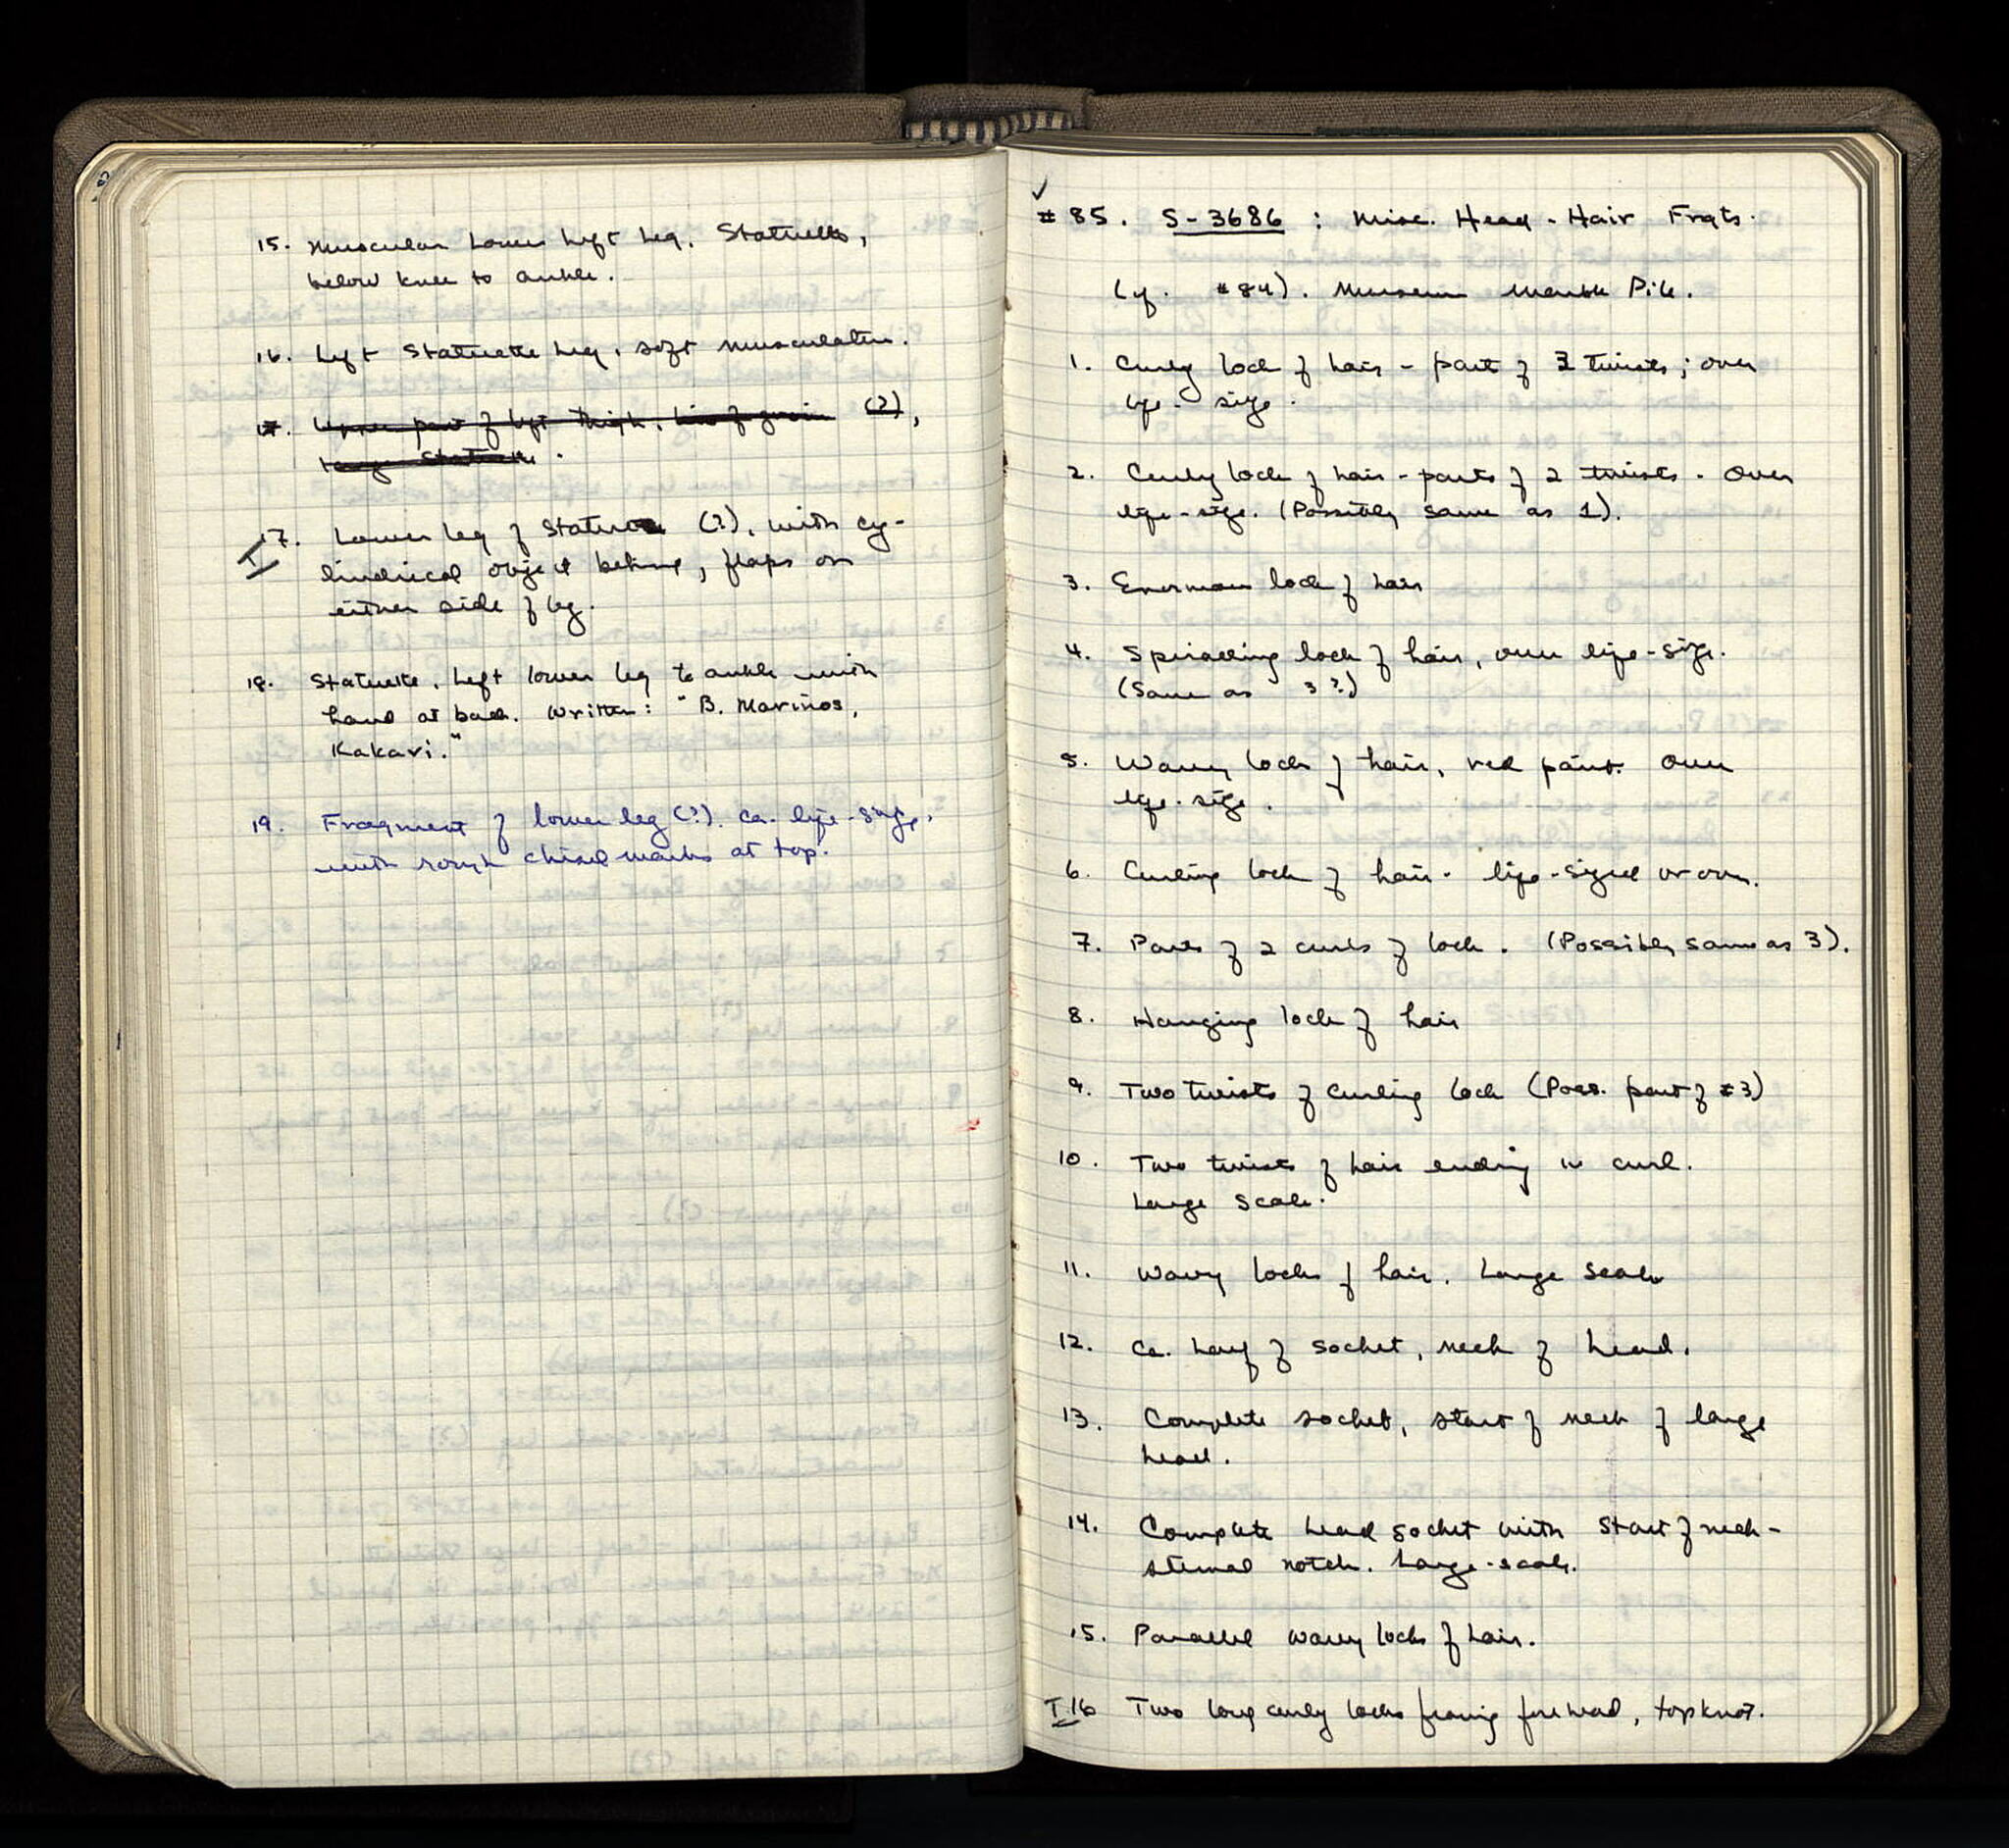 15. Muscular Lower Left Leg. Statuette,
below knee to ankle.
16. Left Statuette Leg, soft musculature.
17. Upper part of left thigh, line of groin (?),
large statuette.
I 17. Lower leg of Statue (?), with cy-
lindrical object behind, flaps on
either side of leg.
18. Statuette. Left lower leg to ankle with
hand at back. Written: "B. Marinos,
Kakavi."
19. Fragment of lower leg (?). Ca. life-size,
with rough chisel marks at top.
✓
#85. S-3686 : Misc. Head - Hair Frgts.
(cf. #84). Museum Marble Pile.
1. Curly lock of hair - part of 3 twists; over
life-size.
2. Curly lock of hair - parts of 2 twists. Over
life-size. (Possibly same as 1).
3. Enormous lock of hair
4. Spiralling lock of hair, over life-size.
(Same as 3?)
5. Wavy lock of hair, red paint. Over
life-size.
6. Curling lock of hair - life-sized or over.
7. Parts of 2 curls of lock. (Possibly same as 3).
8. Hanging lock of hair
9. Two twists of curling lock (Poss. part of #3)
10. Two twists of hair ending in curl.
Large Scale.
11. Wavy locks of hair. Large Scale
12. Ca. half of socket, neck of head.
13. Complete socket, start of neck of large
head.
14. Complete head socket with start of neck -
sternal notch. Large-scale.
15. Parallel wavy locks of hair.
I 16 Two long curly locks framing forehead, topknot.